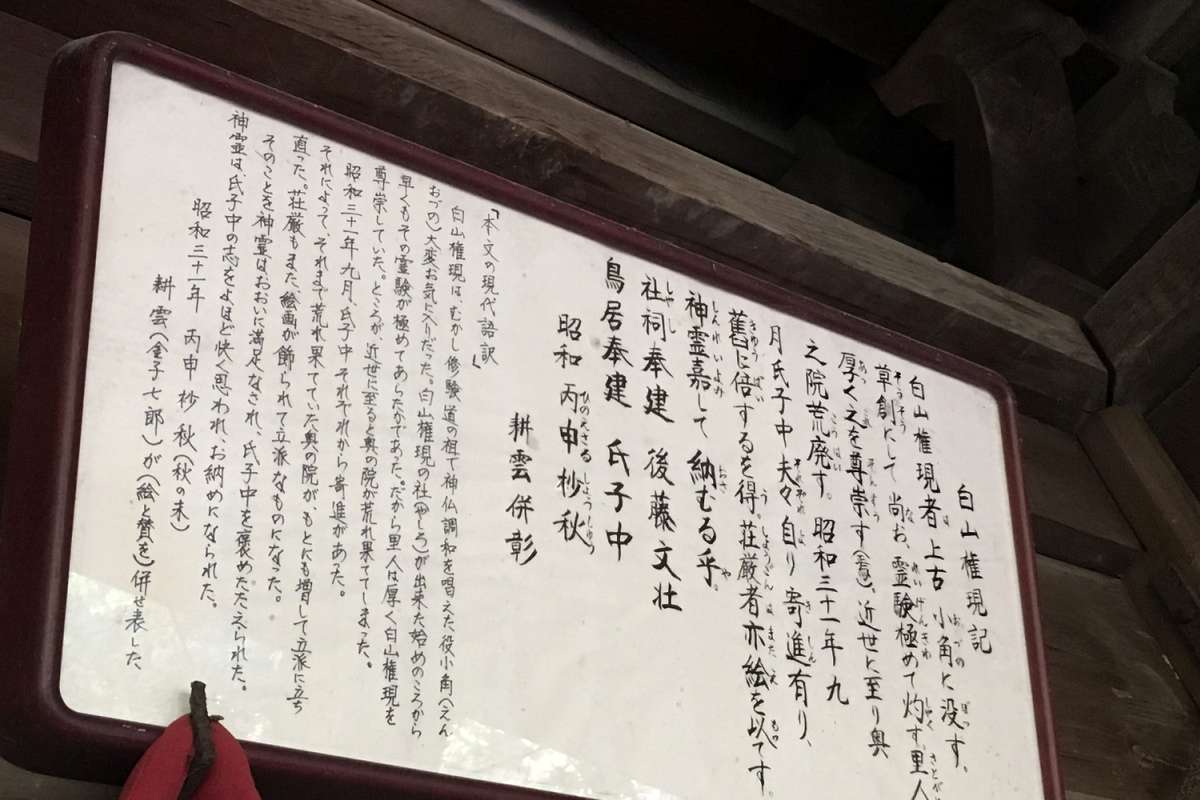 白山権現記
白山権現者上古 小角に没す。
草創にして尚お、霊験極めて灼す里人
厚く之を尊崇す(焉)。近世に至り奥
之院荒廃す。昭和三十一年九
月氏子中夫々自り寄進有り、
舊に倍するを得。荘厳者亦絵を以てす。
神霊嘉して納むる乎。
社祠奉建 後藤文壮
鳥居奉建 氏子中
昭和丙申杪秋
耕雲併彰
「本文の現代語訳」
白山権現は、むかし修験道の祖で神仏調和を唱えた役小角(えん
おづの)大変お気に入りだった。白山権現の社(やしろ)が出来た始めのころから
早くもその霊験が極めてあらたかであった。だから里人は厚く白山権現を
尊崇していた。ところが、近世に至ると奥の院が荒れ果ててしまった。
昭和三十一年九月、氏子中それぞれから寄進があった。
それによって、それまで荒れ果てていた奥の院が、もとにも増して立派に立ち
直った。荘厳もまた、絵画が飾られて立派なものになった。
そのことを神霊はおおいに満足なされ、氏子中を褒めたたえられた。
神霊は、氏子中の志をよほど快く思われ、お納めになられた。
昭和三十一年 丙申 杪秋(秋の末)
耕雲(金子七郎)が(絵と賛を)併せ表した、